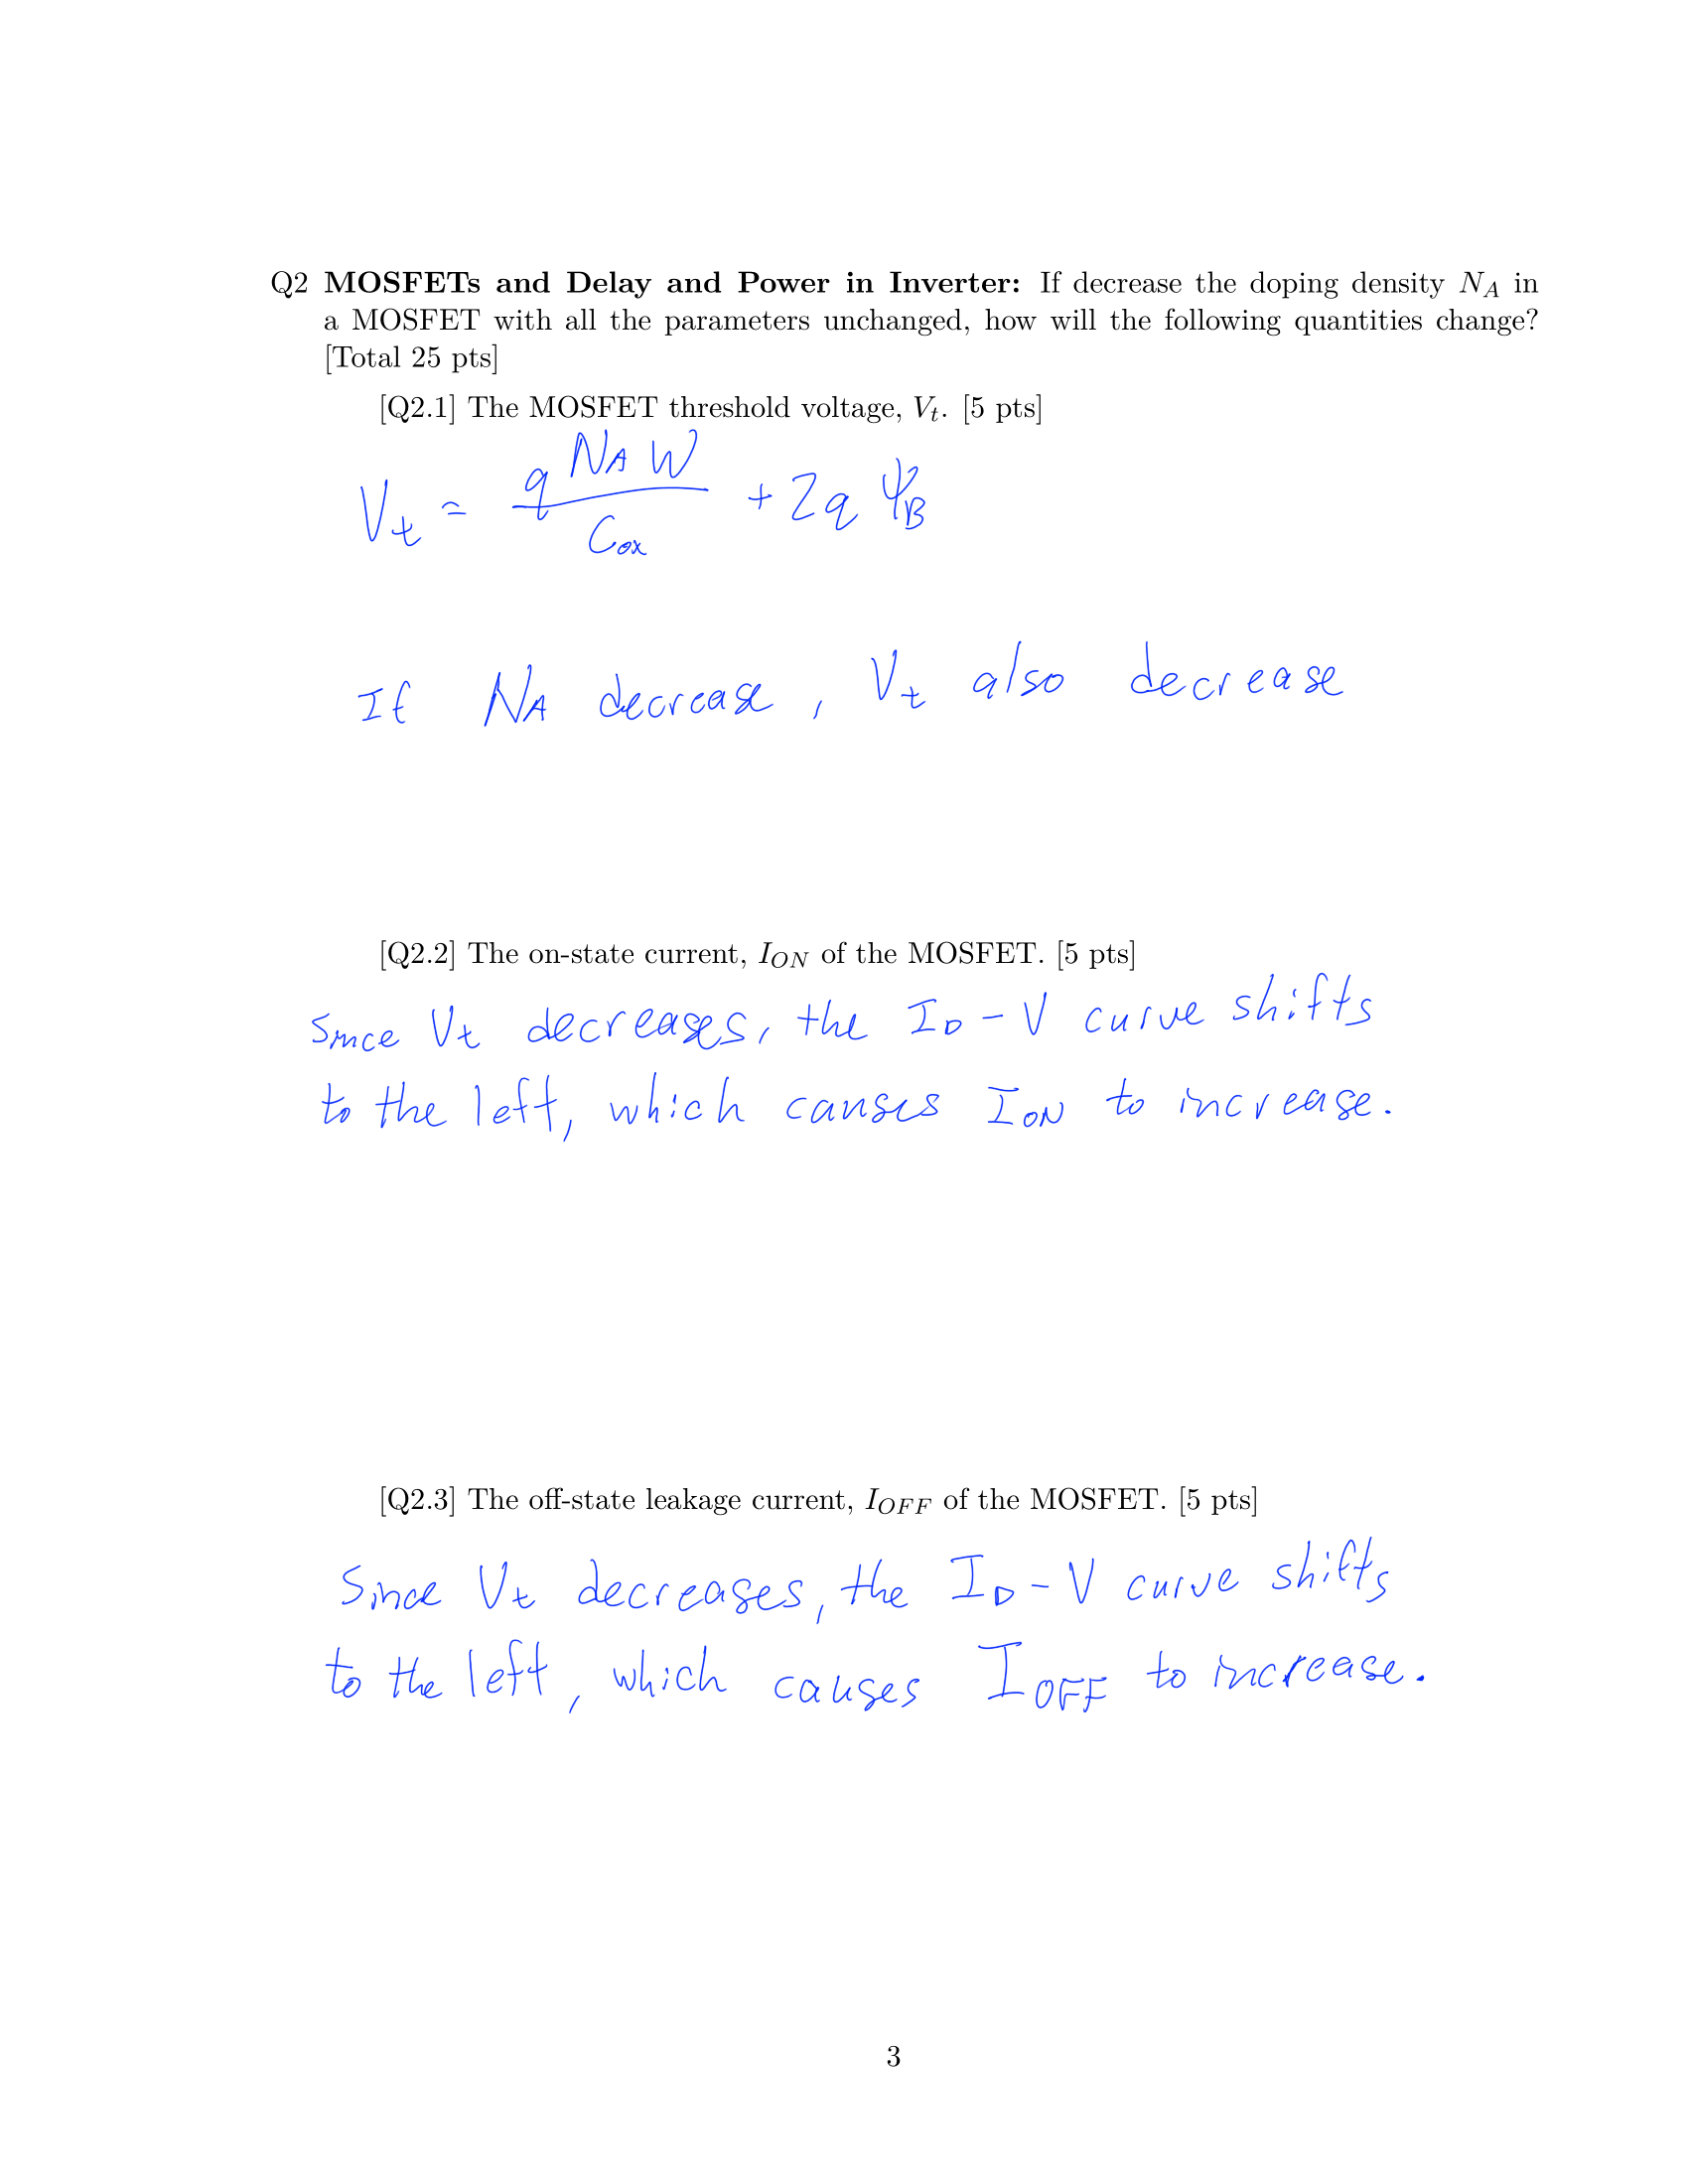 Q2 MOSFETs and Delay and Power in Inverter: If decrease the doping density N_A in
a MOSFET with all the parameters unchanged, how will the following quantities change?
[Total 25 pts]
[Q2.1] The MOSFET threshold voltage, V_t. [5 pts]
V_t = q N_A W / C_ox + 2q ψ_B
If N_A decrease, V_t also decrease
[Q2.2] The on-state current, I_ON of the MOSFET. [5 pts]
Since V_t decreases, the I_D - V curve shifts
to the left, which causes I_ON to increase.
[Q2.3] The off-state leakage current, I_OFF of the MOSFET. [5 pts]
Since V_t decreases, the I_D - V curve shifts
to the left, which causes I_OFF to increase.
3